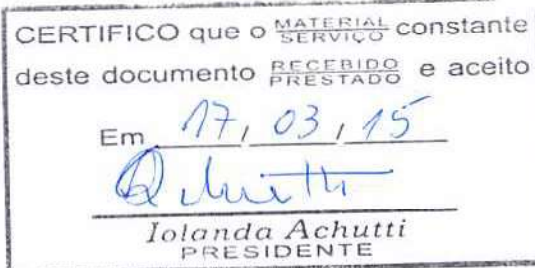 CERTIFICO que o MATERIAL/SERVIÇO constante
deste documento RECEBIDO/PRESTADO e aceito
Em 17, 03, 15
Iolanda Achutti
PRESIDENTE